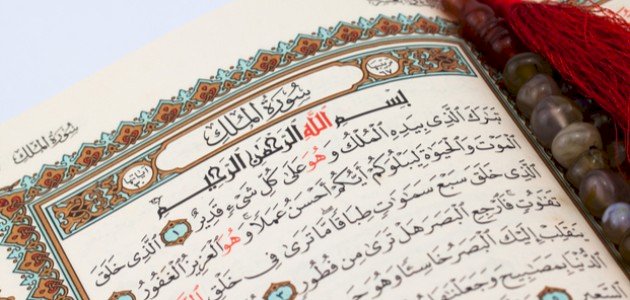 سُورَةُ المُلْك
سُورَةُ المُلْك
آياتها ٣٠
بِسْمِ اللَّهِ الرَّحْمَٰنِ الرَّحِيمِ
تَبَٰرَكَ ٱلَّذِى بِيَدِهِ ٱلْمُلْكُ وَهُوَ عَلَىٰ كُلِّ شَىْءٍ قَدِيرٌ ١ ٱلَّذِى خَلَقَ
ٱلْمَوْتَ وَٱلْحَيَوٰةَ لِيَبْلُوَكُمْ أَيُّكُمْ أَحْسَنُ عَمَلًا وَهُوَ ٱلْعَزِيزُ ٱلْغَفُورُ
ٱلَّذِى خَلَقَ سَبْعَ سَمَٰوَٰتٍ طِبَاقًا مَّا تَرَىٰ فِى خَلْقِ
تَفَٰوُتٍ فَٱرْجِعِ ٱلْبَصَرَ هَلْ تَرَىٰ مِن فُطُورٍ ٣
يَنقَلِبْ إِلَيْكَ ٱلْبَصَرُ خَاسِئًا وَهُوَ
ٱلدُّنْيَا بِمَصَٰبِيحَ وَجَعَلْنَٰهَا